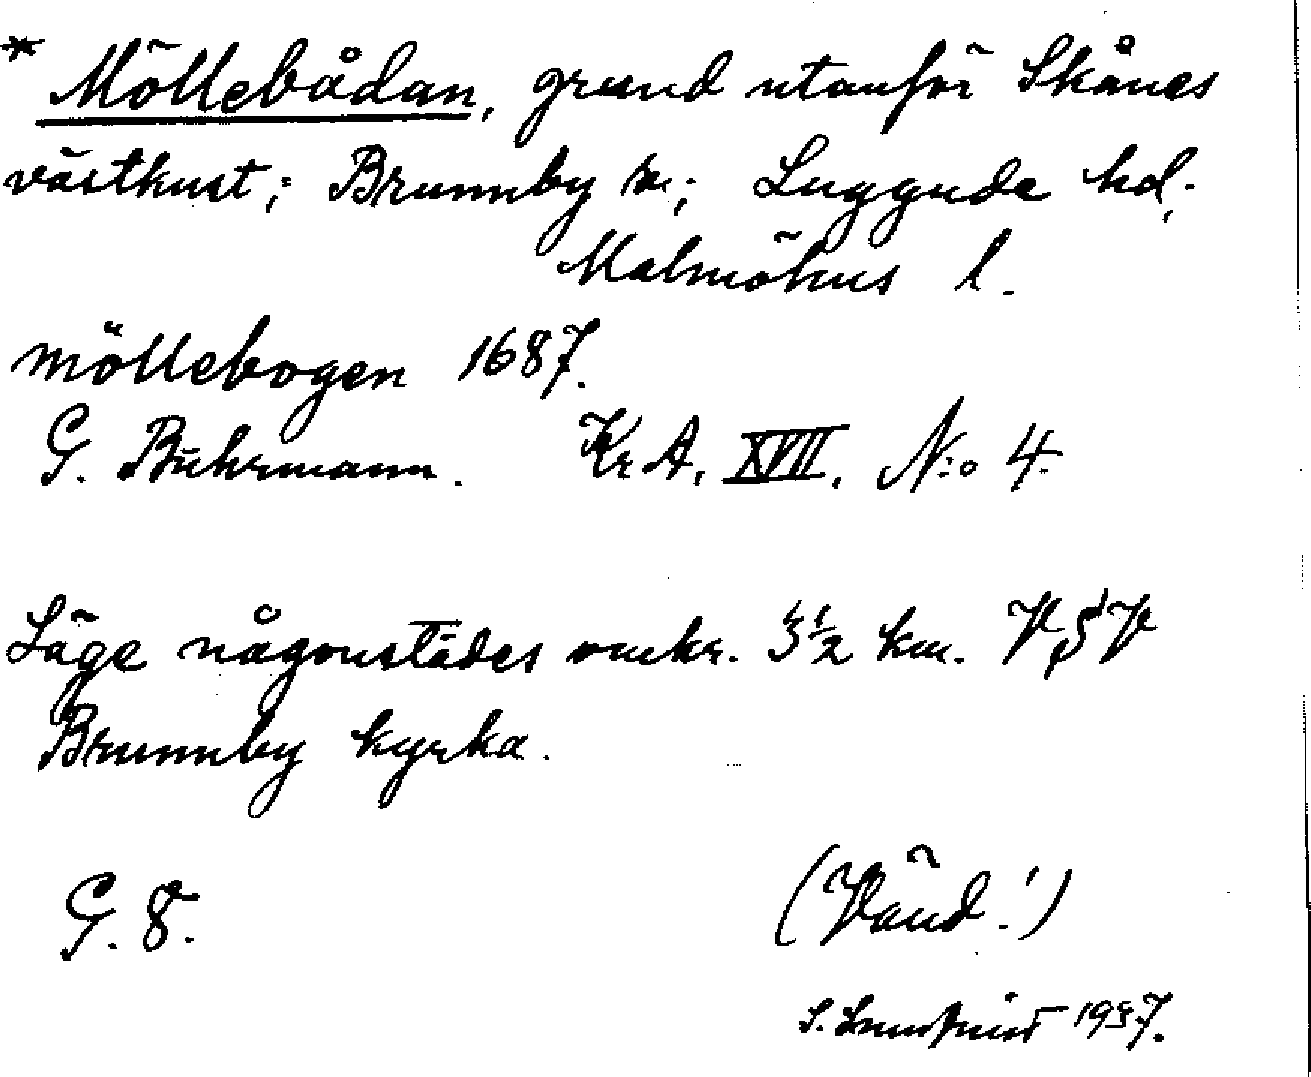 * Möllebådan, grund utanför Skånes
västkust; Brunnby sn; Luggude hd,
Malmöhus l.
möllebogen 1687.
G. Buhrmann. Kr A. XVII. N:o 4.
Läge någonstädes omkr. 3½ km. VSV
Brunnby kyrka.
G. 8.
(Vänd!)
S. 1937.